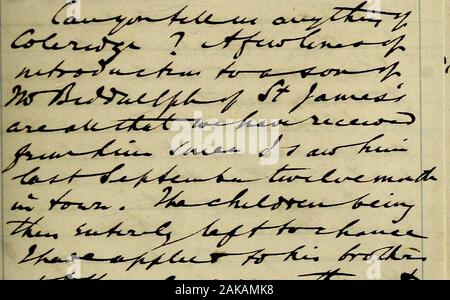 Can you tell us anything of
Coleridge ? A few lines of
introduction to a son of
Mr Biddulph of St James's
are all that we have received
from him since I saw him
last September twelve month
in town. The children being
thus entirely left to chance
I have applied to his brothers
a
alamy
Image ID: 2AKAMK8
www.alamy.com